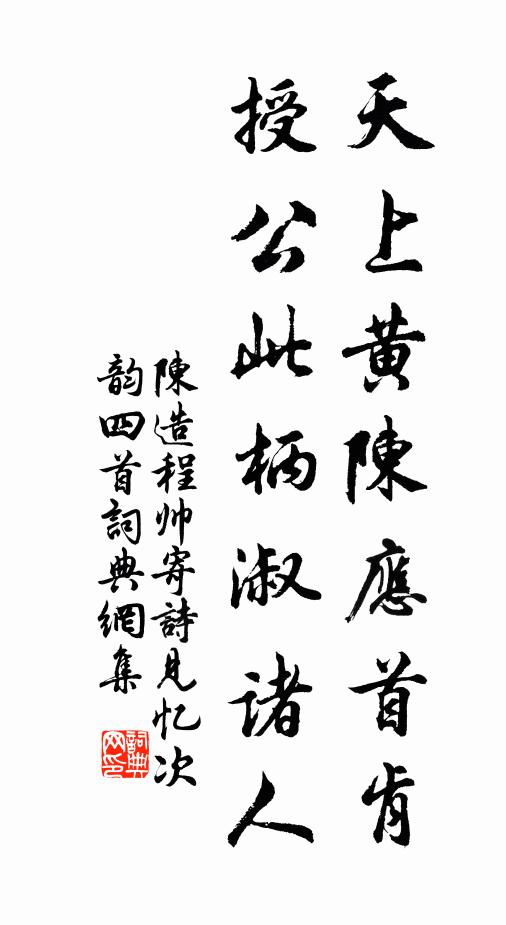 天上黄陳應首肯
授公此柄淑諸人
陳造程帅寄詩見忆次
韵四首詞典網集
詞典網印